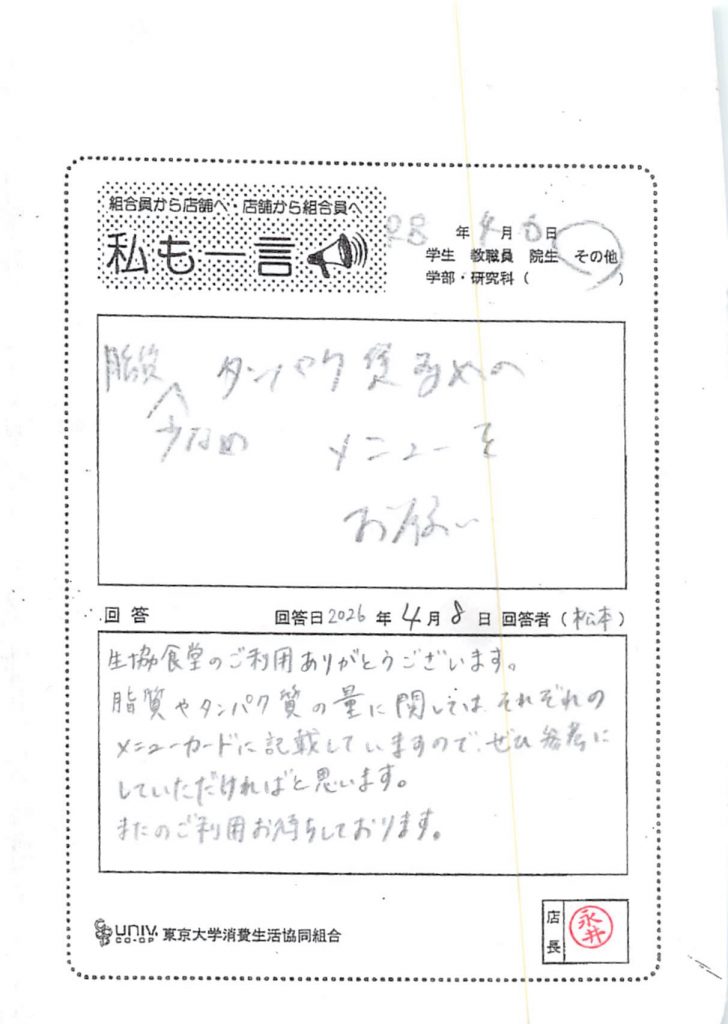 組合員から店舗へ・店舗から組合員へ
私も一言
年4月 日
学生 教職員 院生 その他
学部・研究科( )
脂質 タンパク質多めの
少なめ メニューを
お願い
回答 回答日2026年4月8日 回答者(松本)
生協食堂のご利用ありがとうございます。
脂質やタンパク質の量に関しては、それぞれの
メニューカードに記載していますので、ぜひ参考に
していただければと思います。
またのご利用お待ちしております。
UNIV. CO-OP 東京大学消費生活協同組合
店長 永井